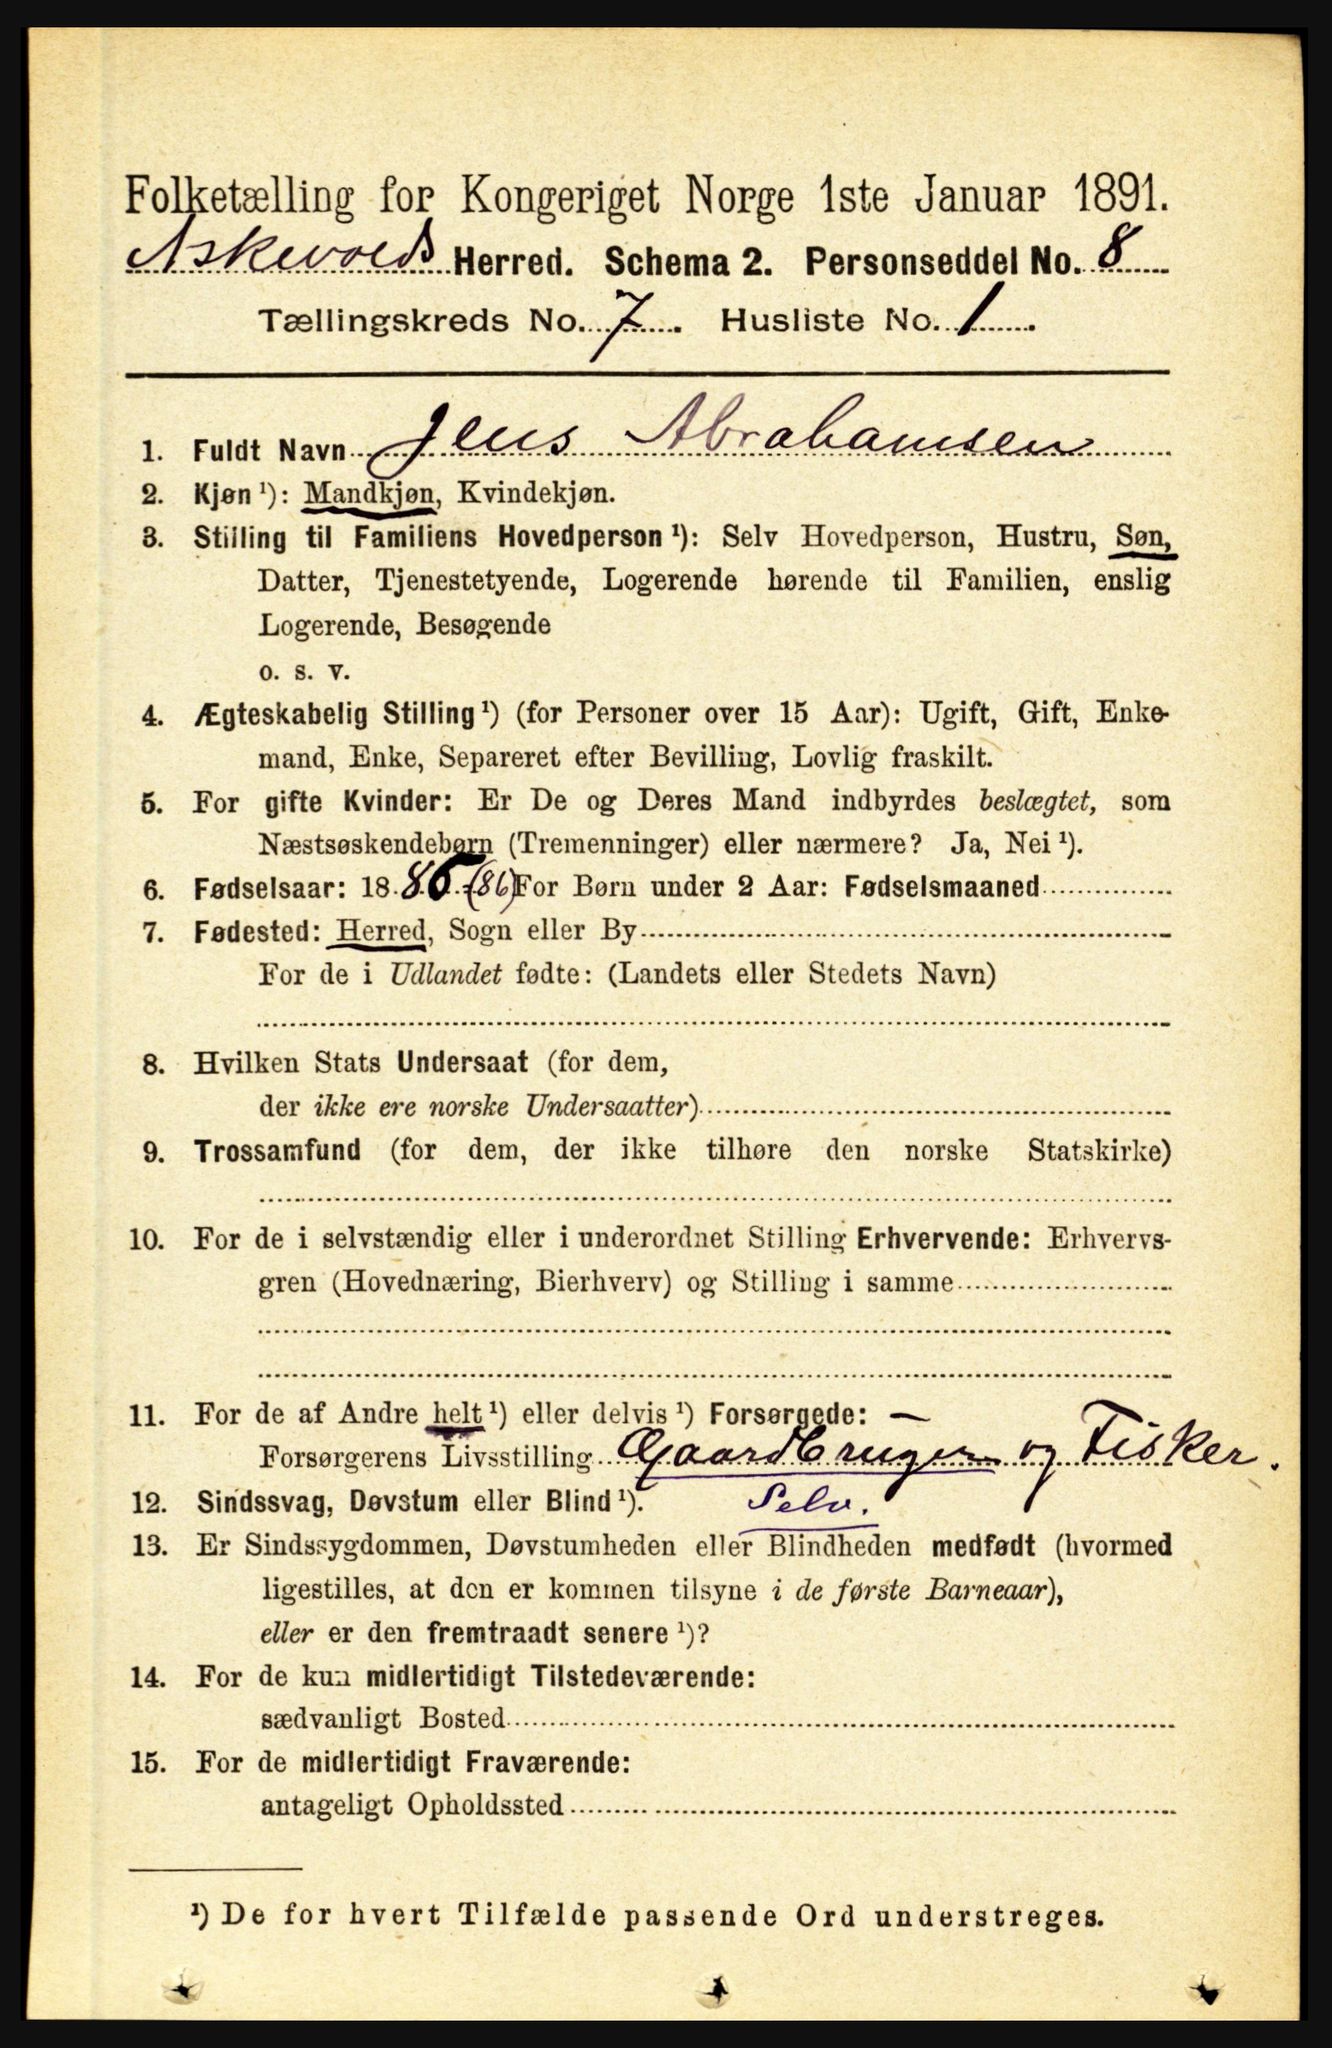 Folketælling for Kongeriget Norge 1ste Januar 1891.
Askevolds Herred. Schema 2. Personseddel No. 8
Tællingskreds No. 7. Husliste No. 1.
1. Fuldt Navn Jens Abrahamsen
2. Kjøn ¹): Mandkjøn, Kvindekjøn.
3. Stilling til Familiens Hovedperson ¹): Selv Hovedperson, Hustru, Søn,
Datter, Tjenestetyende, Logerende hørende til Familien, enslig
Logerende, Besøgende
o. s. v.
4. Ægteskabelig Stilling ¹) (for Personer over 15 Aar): Ugift, Gift, Enke-
mand, Enke, Separeret efter Bevilling, Lovlig fraskilt.
5. For gifte Kvinder: Er De og Deres Mand indbyrdes beslægtet, som
Næstsøskendebørn (Tremenninger) eller nærmere? Ja, Nei ¹).
6. Fødselsaar: 1885 (86) For Børn under 2 Aar: Fødselsmaaned
7. Fødested: Herred, Sogn eller By
For de i Udlandet fødte: (Landets eller Stedets Navn)
8. Hvilken Stats Undersaat (for dem,
der ikke ere norske Undersaatter)
9. Trossamfund (for dem, der ikke tilhøre den norske Statskirke)
10. For de i selvstændig eller i underordnet Stilling Erhvervende: Erhvervs-
gren (Hovednæring, Bierhverv) og Stilling i samme
11. For de af Andre helt ¹) eller delvis ¹) Forsørgede: —
Forsørgerens Livsstilling Gaardbruger og Fisker.
12. Sindssvag, Døvstum eller Blind ¹). Selv.
13. Er Sindssygdommen, Døvstumheden eller Blindheden medfødt (hvormed
ligestilles, at den er kommen tilsyne i de første Barneaar),
eller er den fremtraadt senere ¹)?
14. For de kun midlertidigt Tilstedeværende:
sædvanligt Bosted
15. For de midlertidigt Fraværende:
antageligt Opholdssted
¹) De for hvert Tilfælde passende Ord understreges.